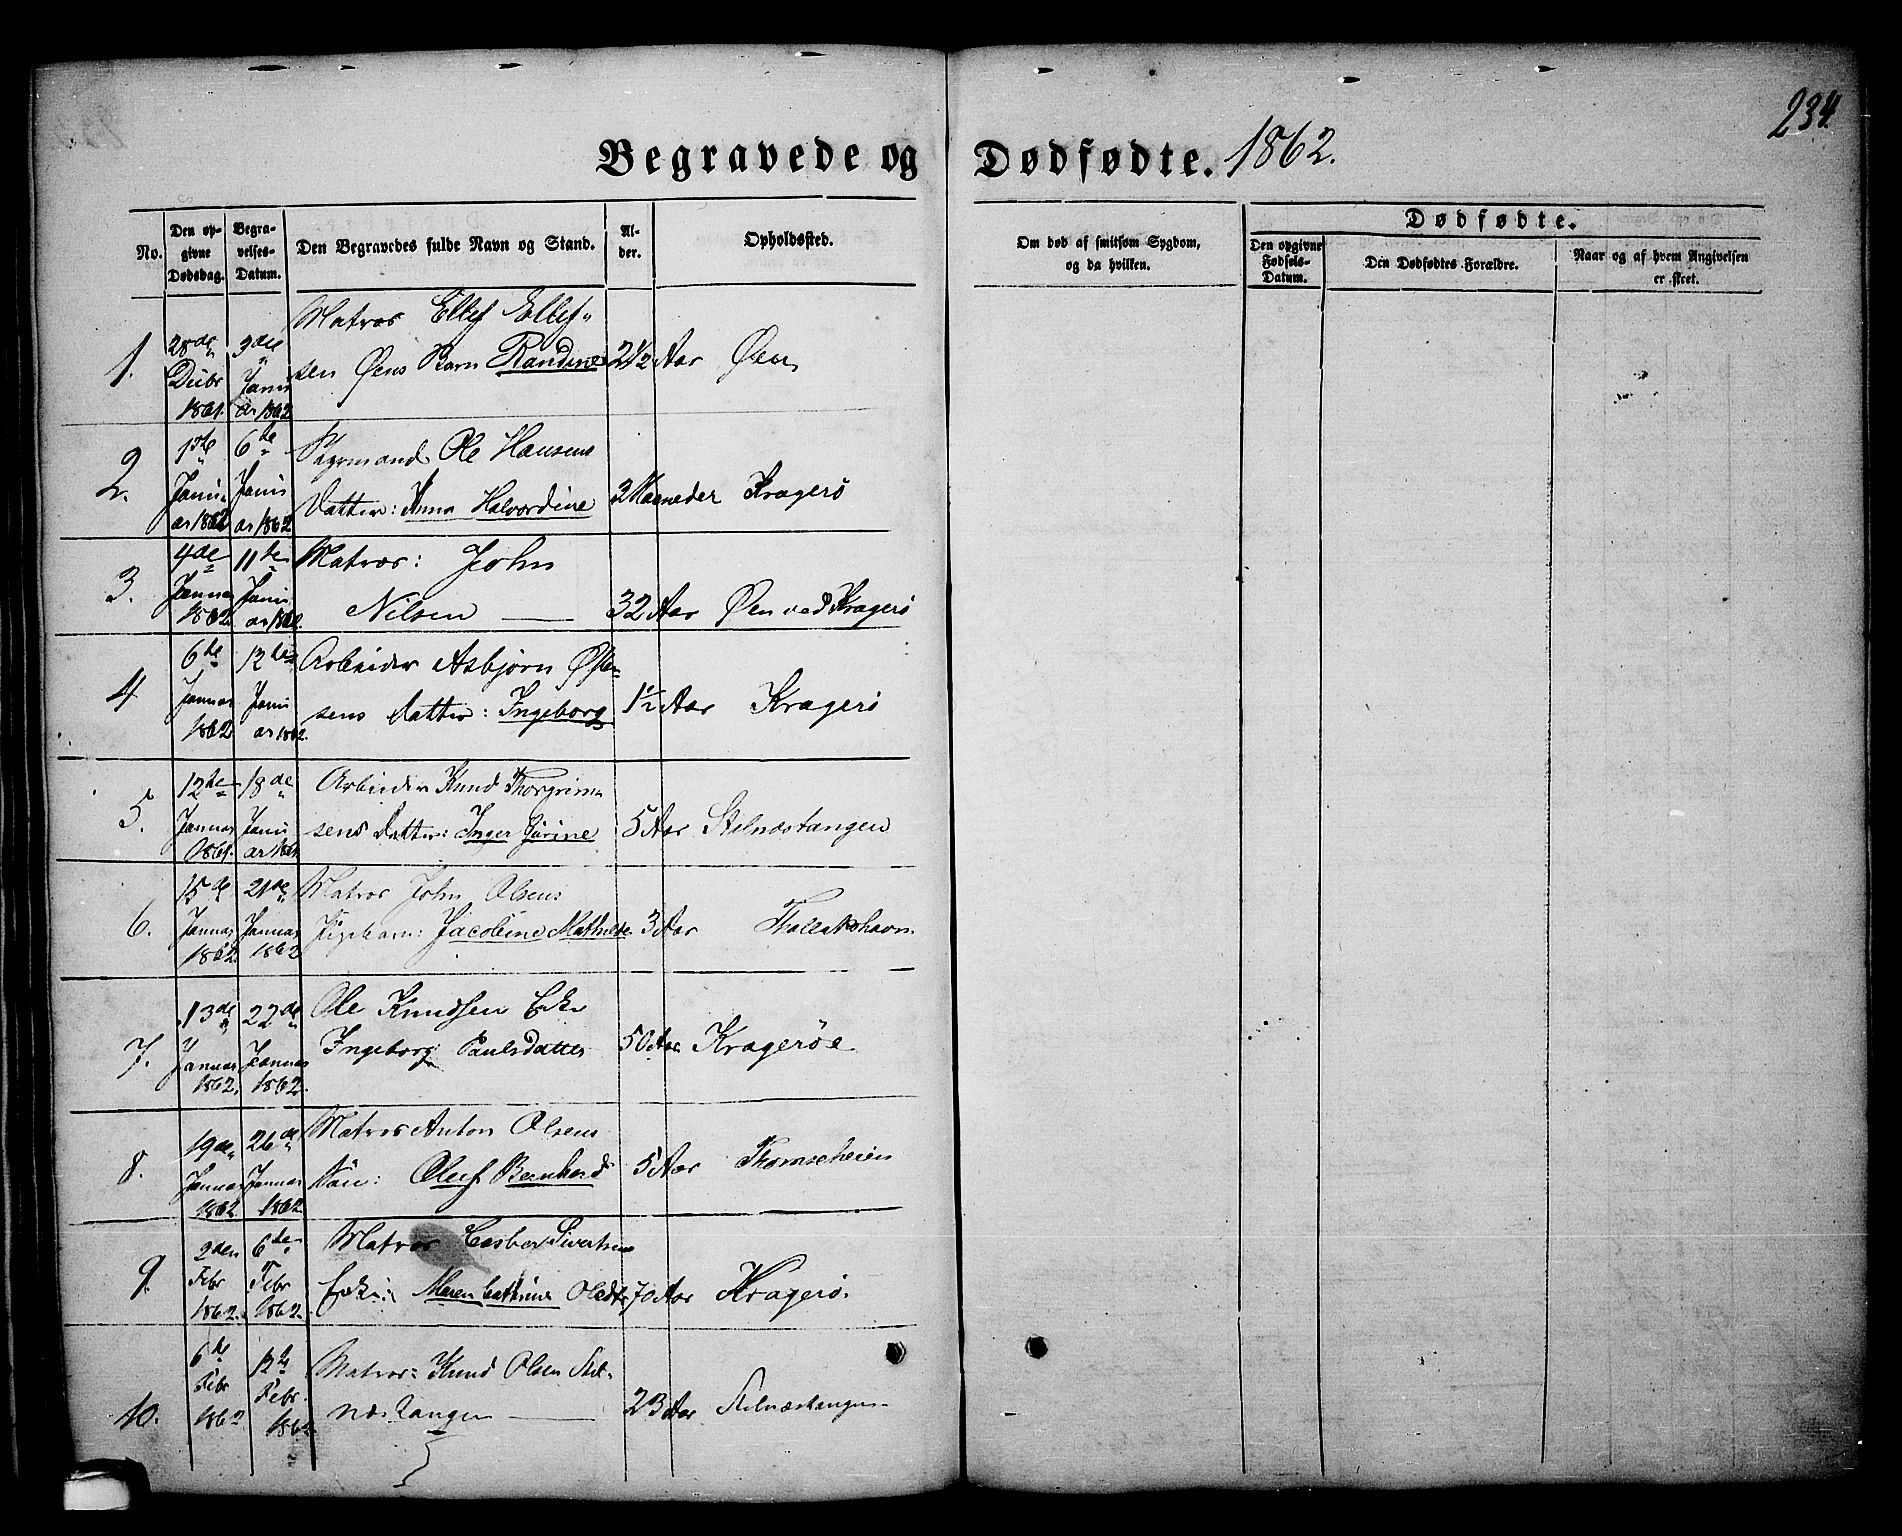 234.
Begravede og Dødfødte. 1862.
No.
Den op-
givne
Dødsdag.
Begra-
velses-
Datum.
Den Begravedes fulde Navn og Stand.
Al-
der.
Opholdssted.
Om død af smitsom Sygdom,
og da hvilken.
Dødfødte.
Den opgivne
Fødsels-
Datum.
Den Dødfødtes Forældre.
Naar og af hvem Angivelsen
er skeet.
1.
28de
Decbr
1861.
3die
Janu
ar 1862
Matros Ellef Ellef-
sen Øens Barn Randine
2 1/2 Aar
Øen
2.
1ste
Janu-
ar 1862
6te
Janu
ar 1862
Styrmand Ole Hansens
Datter: Anna Halvordine
3 Maaneder
Kragerö
3.
4de
Januar
1862
11te
Janu
ar 1862.
Matros: John
Nilsen
32 Aar
Øen ved Kragerö
4
6te
Januar
1862
12te
Janu
ar 1862.
Arbeider Asbjörn
sens Datter: Ingeborg
1 1/2 Aar
Kragerö
5.
12te
Januar
1861.
18de
Janu
ar 1861
Arbeider Knud Thorgrim-
sens Datter: Inger Jörine
5 Aar
Stelnæstangen
6.
15de
Januar
1862.
21de
Januar
1862
Matros John Olsens
Pigebarn: Jacobine Mathilde
3 Aar
Thallakshavn
7.
13de
Januar
1862.
22de
Januar
1862.
Ole Knudsen Enke
Ingeborg Paulsdatter
50 Aar
Kragerøe
8.
19de
Januar
1862
26de
Januar
1862
Matros Anton Olsens
Sön: Oluf Bernhard
5 Aar
Thomesheien
9.
2den
Febr
1862.
6te
Febr
1862.
Matros Casber Sivertsens
Enke: Maren Cathrine Olsdtr
70 Aar
Kragerö.
10.
6te
Febr
1862
12te
Febr.
1862
Matros: Knud Olsen Stel-
næstangen
23 Aar
Stelnæstangen